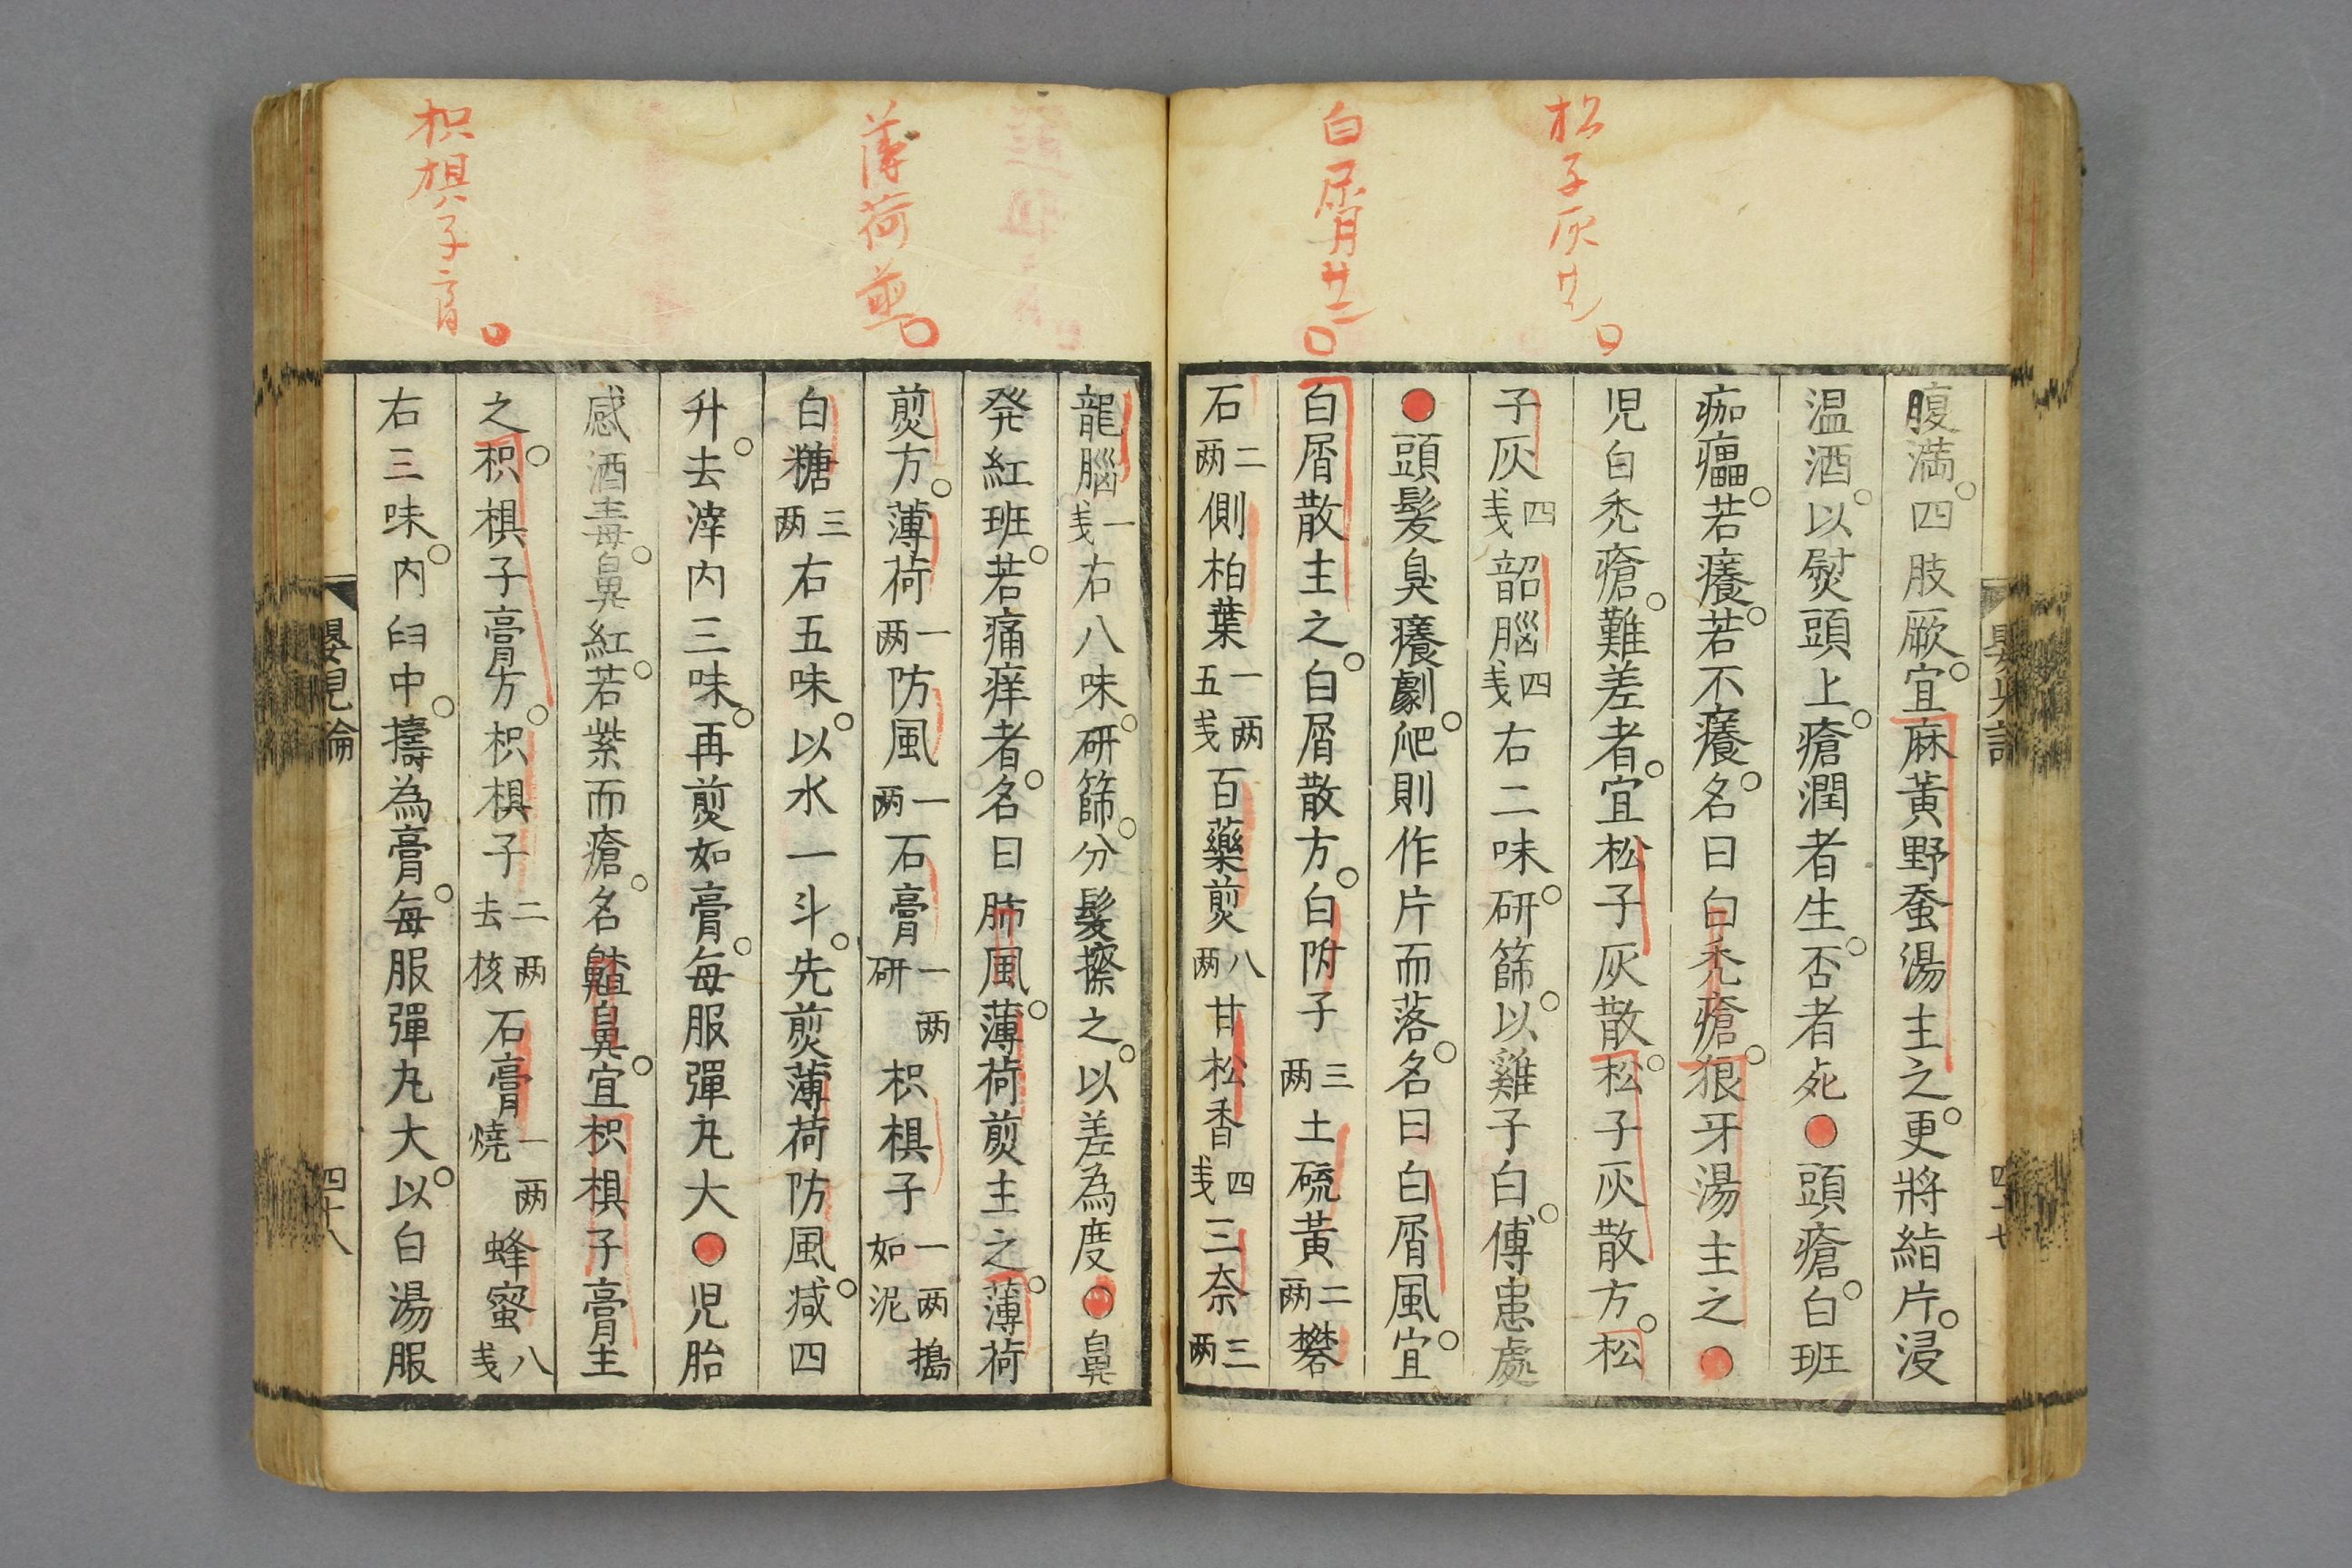 松子灰廿一
白屑廿二
腹満。四肢厥。宜麻黄野蚕湯主之。更將絹片。浸
温酒。以熨頭上。瘡潤者生。否者死●頭瘡。白班
痂㿔。若癢。若不癢。名曰白禿瘡。狼牙湯主之●
児白禿瘡。難差者。宜松子灰散。松子灰散方。松
子灰四戔韶腦四戔右二味。研篩。以雞子白。傅患處
●頭髮臭癢劇。爬則作片而落。名曰白屑風。宜
白屑散主之。白屑散方。白附子三两土硫黃二两礬
石二两側柏葉一两五戔百藥煎八两甘松香四戔三奈三两
薄荷煎
枳椇子膏
龍腦一戔右八味。研篩。分髮擦之。以差為度●鼻
発紅班。若痛痒者。名曰肺風。薄荷煎主之。薄荷
煎方。薄荷一两防風一两石膏一两研枳椇子一两搗如泥
白糖三两右五味。以水一斗。先煎薄荷防風。減四
升。去滓内三味。再煎如膏。每服彈丸大●児胎
感酒毒。鼻紅。若紫而瘡。名齇鼻。宜枳椇子膏主
之。枳椇子膏方。枳椇子二两去核石膏一两燒蜂蜜八戔
右三味。内臼中。擣為膏。每服彈丸大。以白湯服
嬰児論
四十八